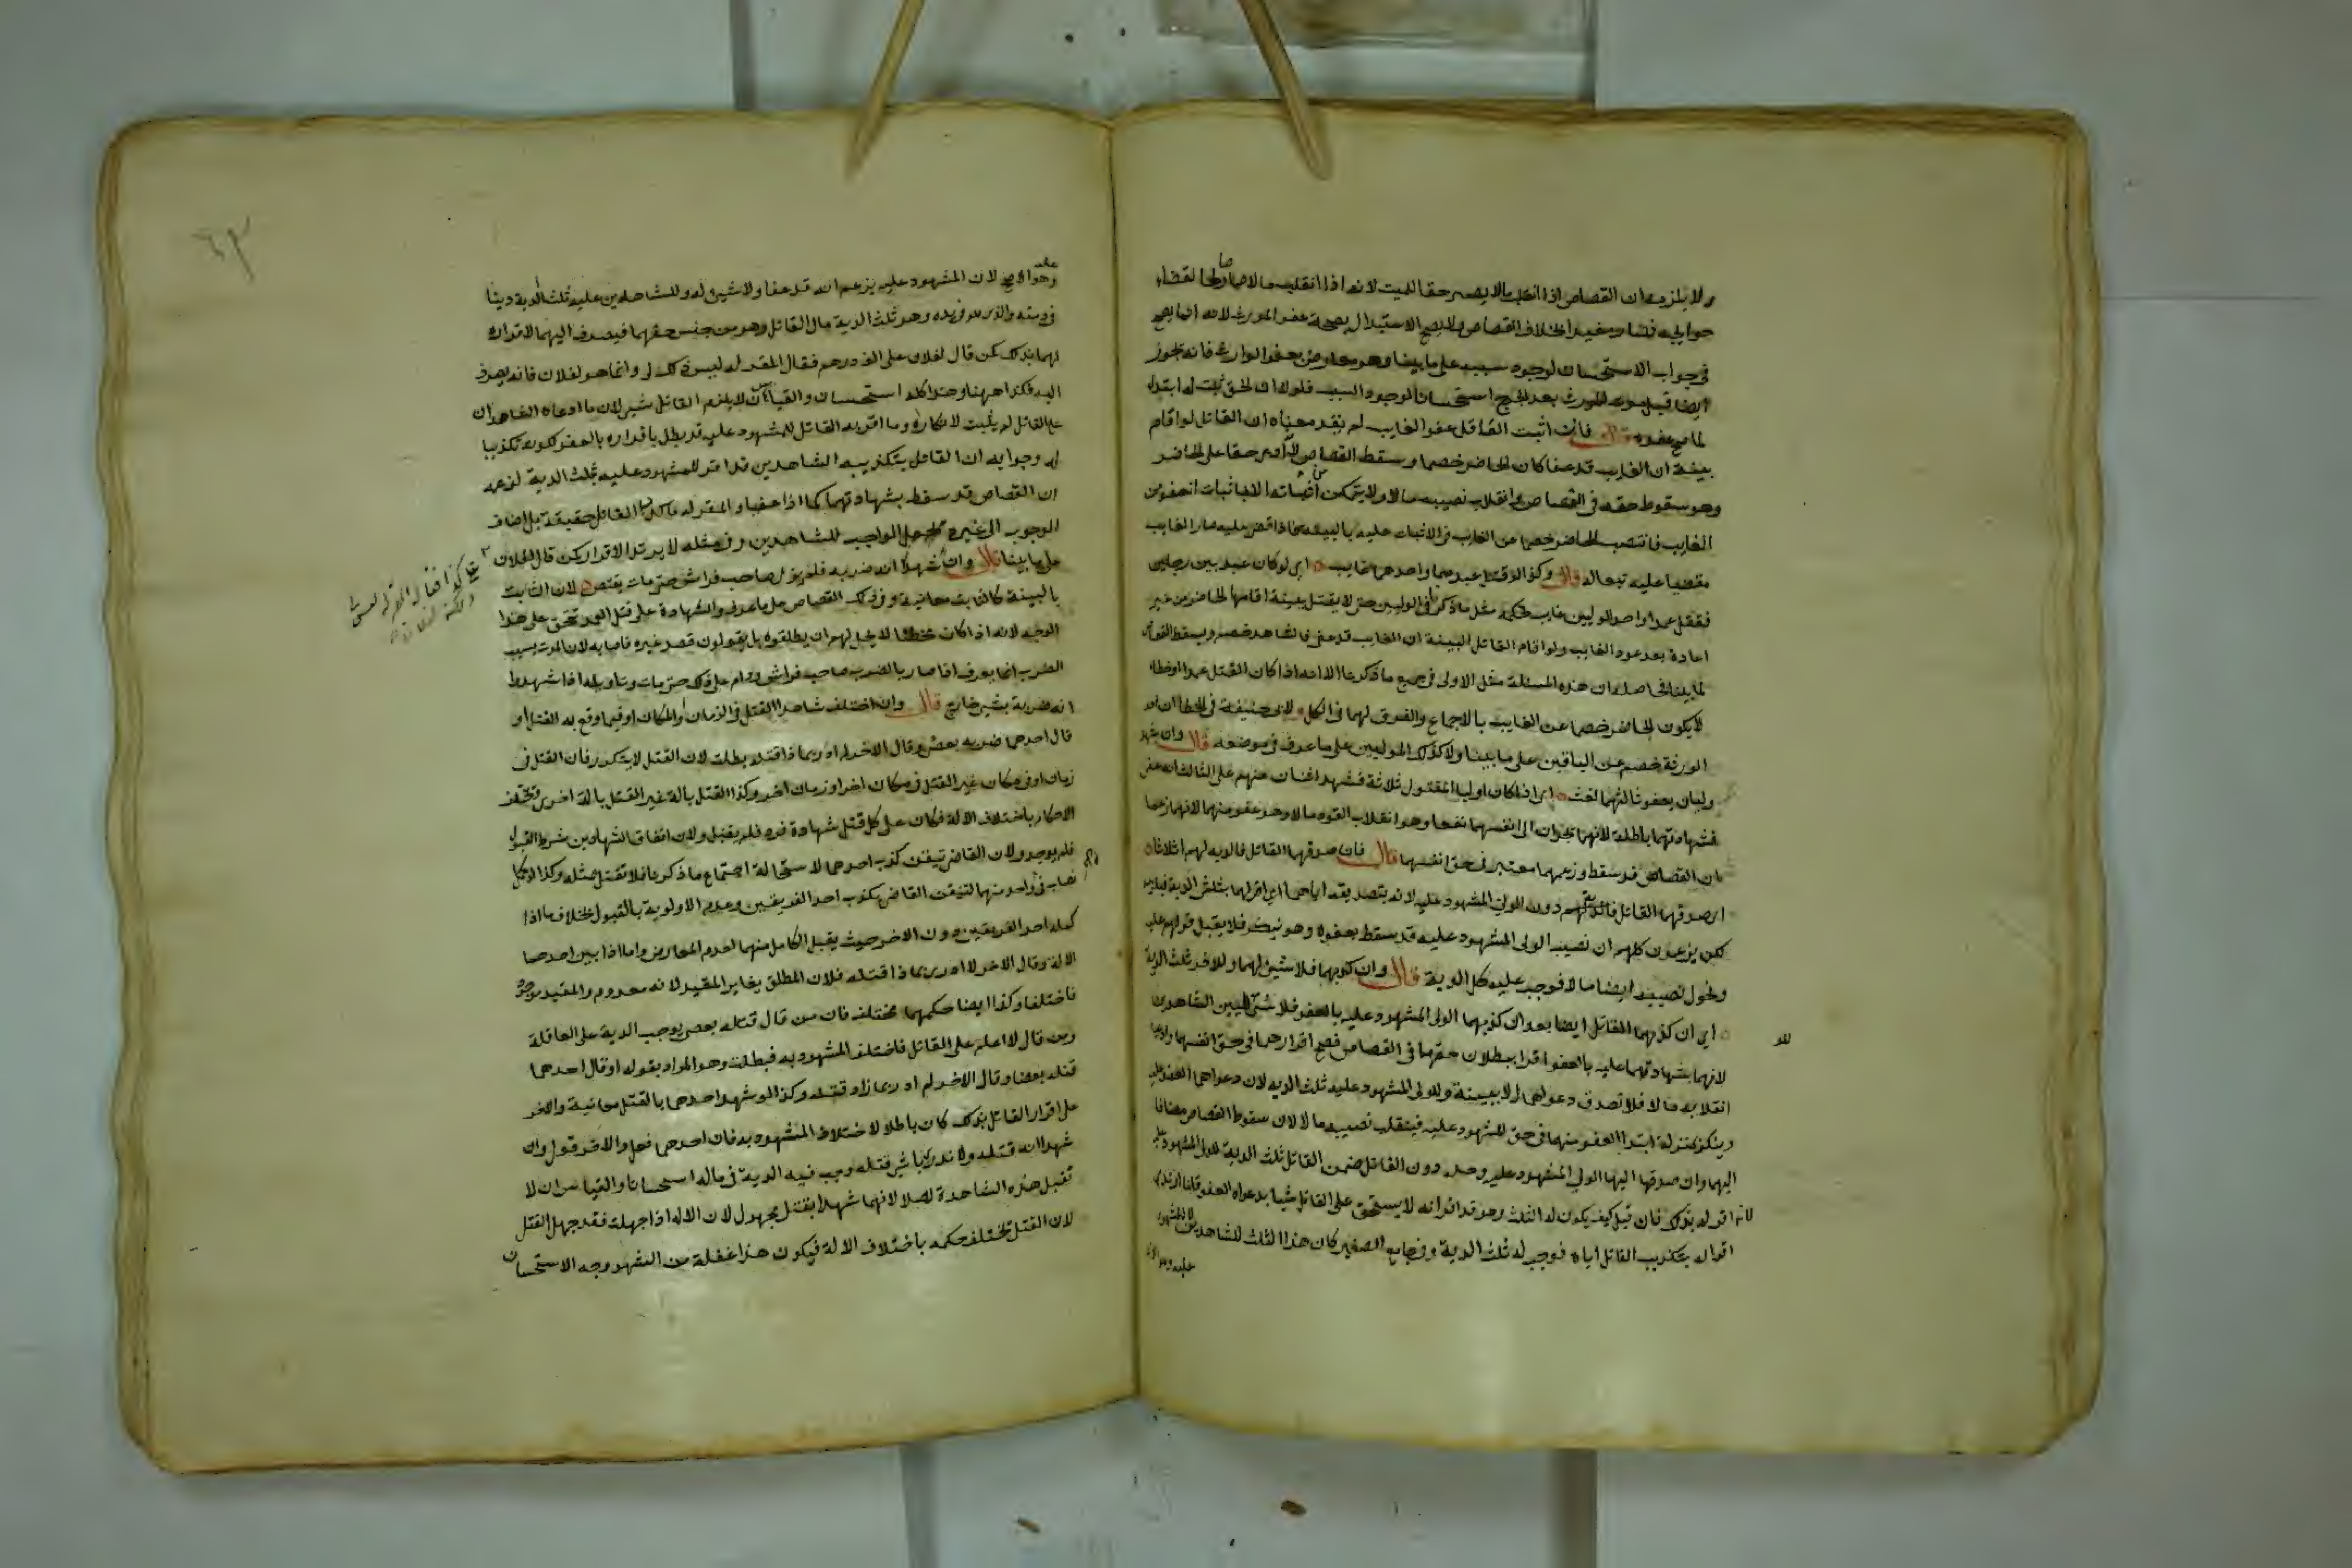 ولا يلزمه ان القصاص اذا انقلب مالا يصير حقا للميت لانه اذا انقلب مالا صار صالحا لقضاء
حوايجه فصار مفيدا بخلاف القصاص ولا يصح الاستبدال بصحة عفو المورث لانه انما يصح
في جواب الاستحسان لوجود سببه على ما بينا وهو معارض بعفو الوارث فانه يجوز
ايضا قبل موت المورث بعد الجرح استحسانا لوجود السبب فلولا ان الحق يثبت له ابتداء
لما صح عفوه قال فان اثبت القاتل عفو الغايب لم يقد معناه ان القاتل لو اقام
بينة ان الغايب قد عفا كان الحاضر خصما وسقط القصاص لانه ادعى حقا على الحاضر
وهو سقوط حقه في القصاص وانقلاب نصيبه مالا ولا يتمكن من اثباته الا باثبات العفو من
الغايب فانتصب الحاضر خصما عن الغايب في الاثبات عليه بالبينة فاذا قضى عليه صار الغايب
مقضيا عليه تبعا له قال وكذا لو قتل عبدهما واحدهما غايب اي لو كان عبد بين رجلين
فقتل عمدا واحد الوليين غايب فحكمه مثل ما ذكرنا في الوليين حتى لا يقتل ببينة اقامها الحاضر من غير
اعادة بعد عود الغايب ولو اقام القاتل البينة ان الغايب قد عفى فالشاهد خصم ويسقط القصاص
لما بينا فحاصله ان هذه المسئلة مثل الاولى في جميع ما ذكرنا الا انه اذا كان القتل عمدا او خطا
لا يكون الحاضر خصما عن الغايب بالاجماع والفرق لهما في الكل ولابي حنيفة في الخطا ان احد
الورثة خصم عن الباقين على ما بينا ولا كذلك الموليين على ما عرف في موضعه قال وان شهد
وليان بعفو ثالثهما لغت اي اذا كان اوليا المقتول ثلاثة فشهد اثنان منهم على الثالث انه عفى
فشهادتهما باطلة لانهما يجران الى انفسهما نفعا وهو انقلاب القود مالا وهو عفو منهما لانهما زعما
ان القصاص قد سقط وزعمهما معتبر في حق انفسهما قال فان صدقهما القاتل فالدية لهم اثلاثا
اي صدقهما القاتل دون الولي المشهود عليه لانه بتصديقه اياهما اقر لهما بثلثي الدية فيلزمه
لكن يزعمون كلهم ان نصيب الولي المشهود عليه قد سقط بعفوه وهو ينكر فلا يقبل قولهم عليه
وتحول نصيبه ايضا مالا فوجب عليه كل الدية قال وان كذبهما فلا شيئ لهما وللاخر ثلث الدية
اي ان كذبهما القاتل ايضا بعد ان كذبهما الولي المشهود عليه بالعفو فلا شيئ للشاهدين
لانهما بشهادتهما عليه بالعفو اقرا ببطلان حقهما في القصاص فصح اقرارهما في حق انفسهما وادعيا
انقلابه مالا فلا تصدق دعواهما الا ببينة وللولي المشهود عليه ثلث الدية لان دعواهما العفو عليه
وينكر بمنزلة ابتداء العفو منهما في حق المشهود عليه فينقلب نصيبه مالا لان سقوط القصاص مضافا
اليهما وان صدقهما الولي المشهود عليه وحده دون القاتل ضمن القاتل ثلث الدية للولي المشهود عليه
لانه اقر له بذلك فان قيل كيف يكون له الثلث وهو قد اقر انه لا يستحق على القاتل شيا بدعواه العفو قلنا ارتد
اقراله بتكذيب القاتل اياه فوجب له ثلث الدية وفي الجامع الصغير كان هذا الثلث للشاهدين لا للمشهود
عليه وهو الاصح
٤٣
عليه وهو الاصح لان المشهود عليه يزعم انه قد عفا ولا شيئ له وللشاهدين عليه ثلث الدية دينا
في ذمته والذي في يده وهو ثلث الدية مال القاتل وهو من جنس حقهما فيصرف اليهما لاقراره
لهما بذلك كمن قال لفلان على الف درهم فقال المقر له ليس ذلك لي وانما هو لفلان فانه يصرف
اليه فكذا ههنا وهذا كله استحسان والقياس ان لا يلزم القاتل شيئ لان ما ادعاه الشاهدان
على القاتل لم يثبت لانكاره وما اقر به القاتل للمشهود عليه قد بطل باقراره بالعفو لكونه تكذيبا
له وجوابه ان القاتل بتكذيبه الشاهدين قد اقر للمشهود عليه بثلث الدية لزعمه
ان القصاص قد سقط بشهادتهما كما اذا عفيا والمقر له ما كذب القاتل حقيقة بل اضاف
الوجوب الى غيره فجعل الواجب للشاهدين وفي مثله لا يرتد الاقرار كمن قال لفلان
على ما بينا قال وان شهدا انه ضربه فلم يزل صاحب فراش حتى مات يقتص لان الثابت
بالبينة كالثابت معاينة وفي ذلك القصاص على ما عرف والشهادة على قتل العمد تتحقق على هذا
الوجه لانه اذا كان مخطئا لا يحل لهم ان يطلقوه بل يقولون قصد غيره فاصابه لان الموت بسبب
الضرب انما يعرف اذا صار بالضرب صاحب فراش ودام على ذلك حتى مات وتاويله اذا شهدوا
انه ضربه بشيئ جارح قال وان اختلف شاهدا القتل في الزمان او المكان او فيما وقع به القتل او
قال احدهما ضربه بعصا وقال الاخر لم ادر بماذا قتله بطلت لان القتل لا يتكرر فان القتل في
زمان او في مكان غير القتل في مكان اخر او زمان اخر وكذا القتل بالة غير القتل بالة اخرى وتختلف
الاحكام باختلاف الالة فكان على كل قتل شهادة فرد فلم يقبل ولان اتفاق الشهادتين شرط القبول
فلم يوجد ولان القاضي تيقن كذب احدهما لاستحالة اجتماع ما ذكرنا فلا تقبل بمثله وكذا لو كمل
نصاب كل واحد منهما لتيقن القاضي بكذب احد الفريقين وعدم الاولوية بالقبول بخلاف ما اذا
كمل احد الفريقين دون الاخر حيث يقبل الكامل منهما لعدم المعارض واما اذا بين احدهما
الالة وقال الاخر لا ادري بماذا قتله فلان المطلق يغاير المقيد لانه معدوم والمقيد موجود
فاختلفا وكذا ايضا حكمهما مختلف فان من قال قتله بعصى يوجب الدية على العاقلة
ومن قال لا اعلم على القاتل فاختلف المشهود به فبطلت وهو المراد بقوله او قال احدهما
قتله بعصا وقال الاخر لم ادر بماذا قتله وكذا لو شهد احدهما بالقتل معاينة والاخر
على اقرار القاتل بذلك كان باطلا لاختلاف المشهود به فان احدهما فعل والاخر قول وان
شهدا انه قتله ولا ندري باي شيئ قتله وجب فيه الدية في ماله استحسانا والقياس ان لا
تقبل هذه الشاهدة اصلا لانهما شهدا بقتل مجهول لان الالة اذا جهلت فقد جهل القتل
لان القتل تختلف حكمه باختلاف الالة فيكون هذا غفلة من الشهود وجه الاستحسان